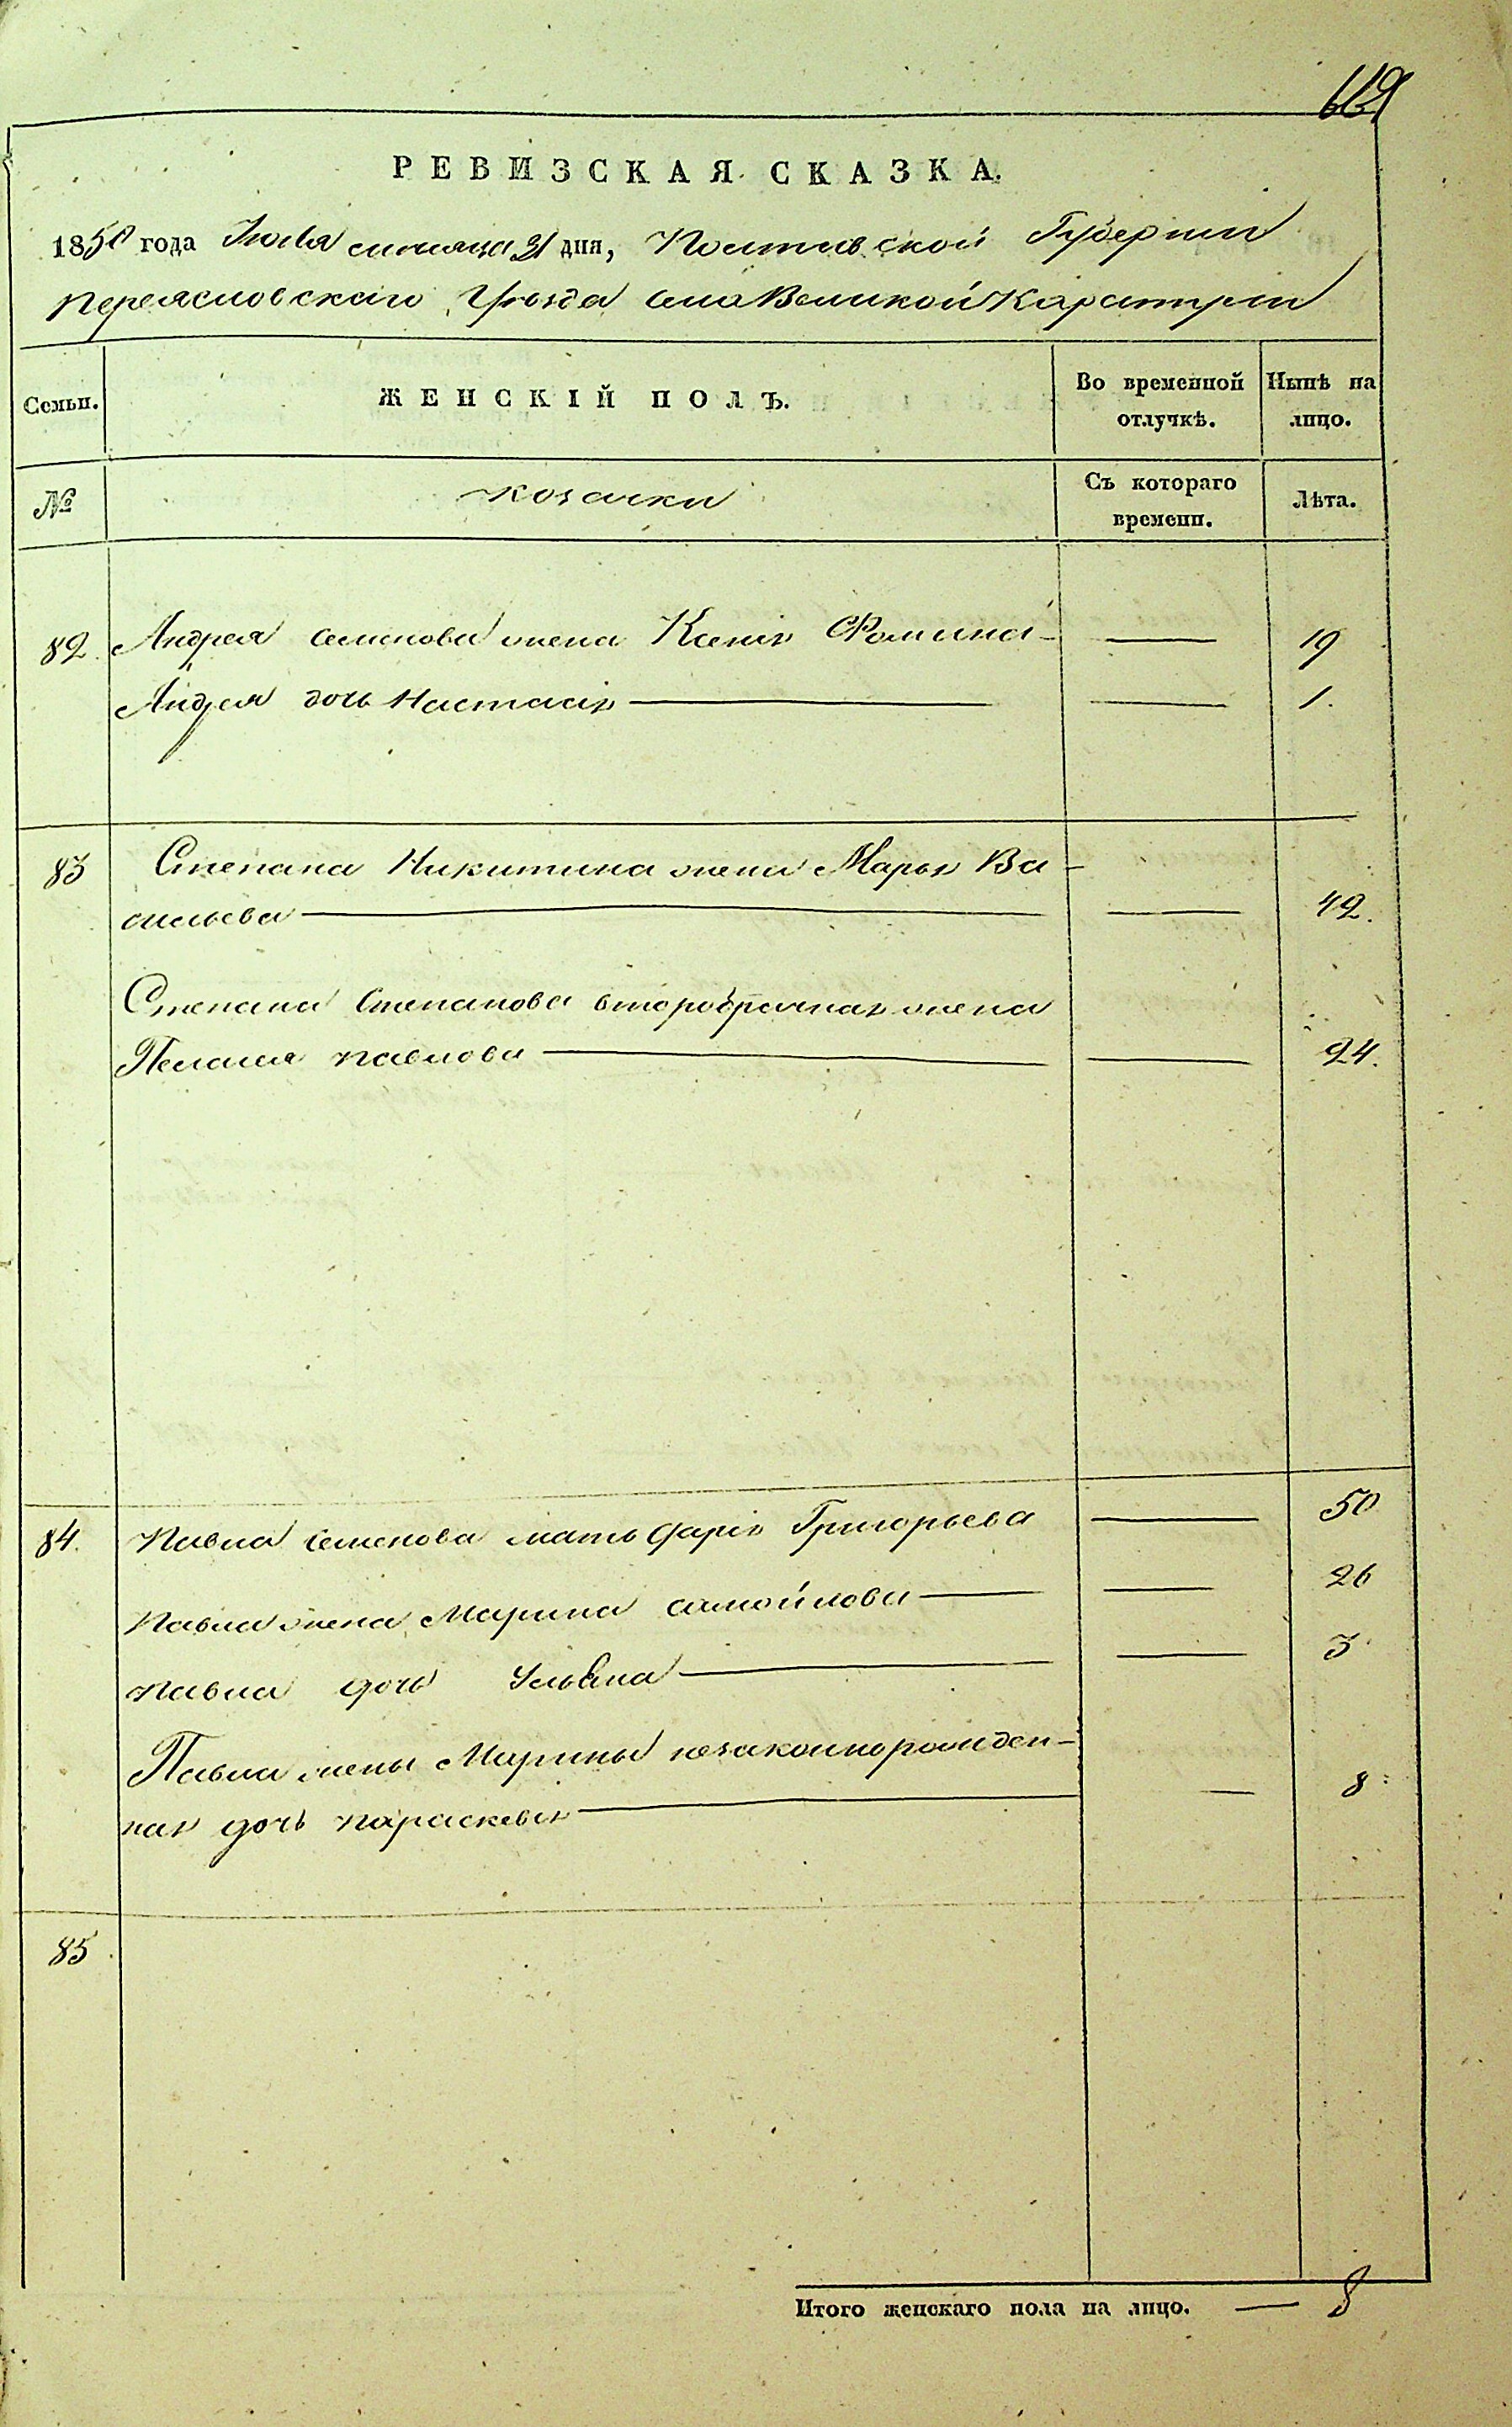 РЕВИЗСКАЯ СКАЗКА.
1850 года месяца 21 дня, Полтавской Губернии
Переясловского Уезда села Великой Каратули
Семьи. ЖЕНСКІЙ ПОЛЪ. Во временной отлучкѣ. Нынѣ на лицо.
№ козачки Съ котораго времени. Лѣта.
82. Андрея Семенова жена Ксенія Фомина — — 19
Андрея дочь Настасія — — 1.
83 Степана Никитина жена Марья Ва-
сильева — — 42.
Степана Степанова второбрачная жена
Пелагея Павлова — — 24.
84. Павла Семенова мать Дарія Григорьева — 50
Павла жена Марина Самойлова — — 26
Павла дочь Ульяна — — 3
Павла жены Марины незаконнорожден-
ная дочь Параскевія — — 8
85
Итого женскаго пола на лицо. — 8